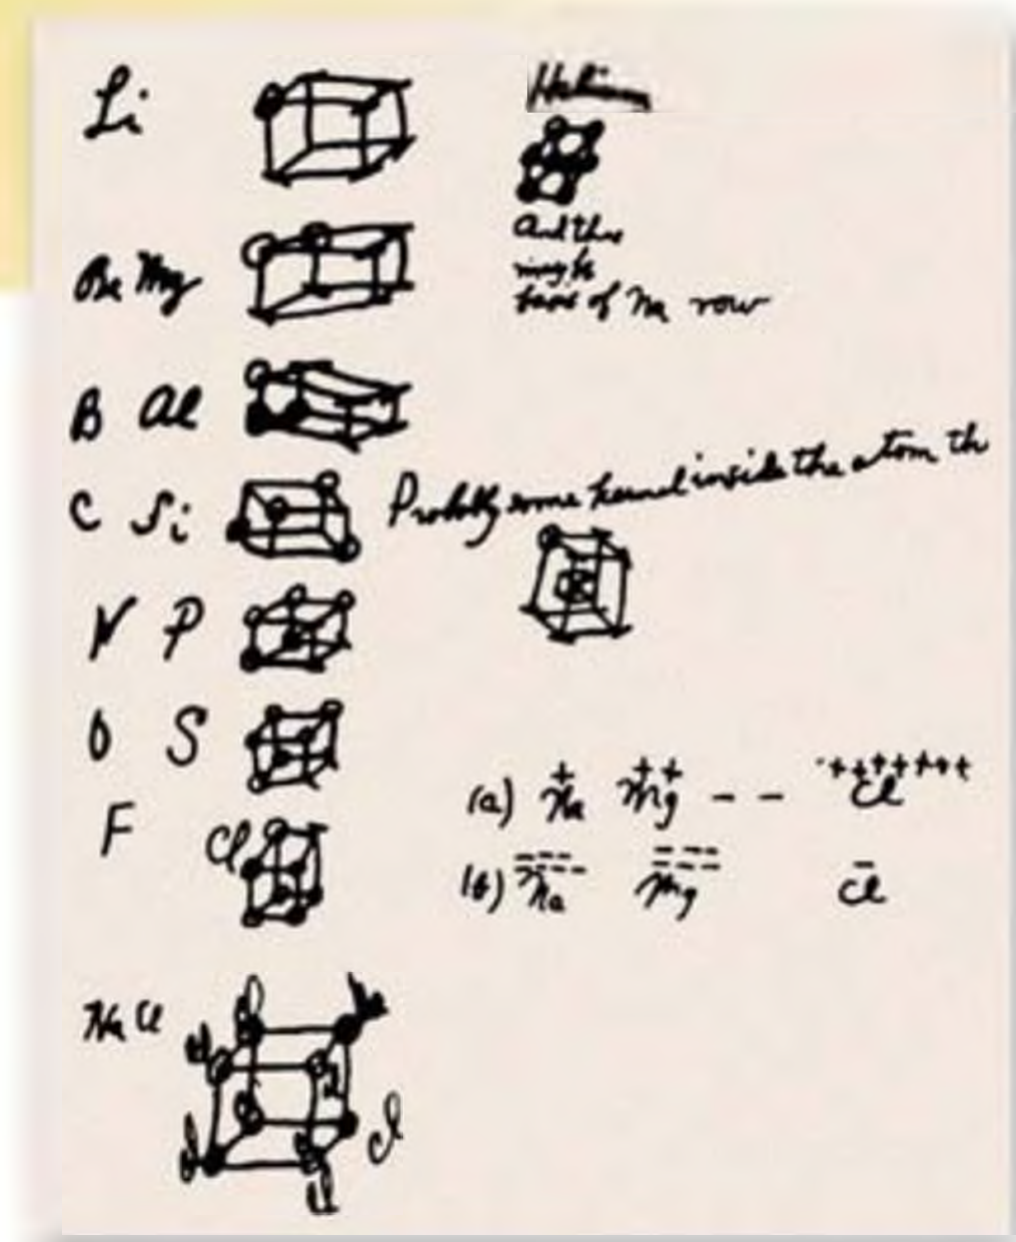 Li
Helium
And this
may be
base of Na row
Be Mg
B Al
C Si
Probably some kernel inside the atom th
N P
O S
F Cl
(a) Na + Mg ++ - - Cl +++++++
(b) Na Mg Cl -
Na Cl
Na
Cl
Cl